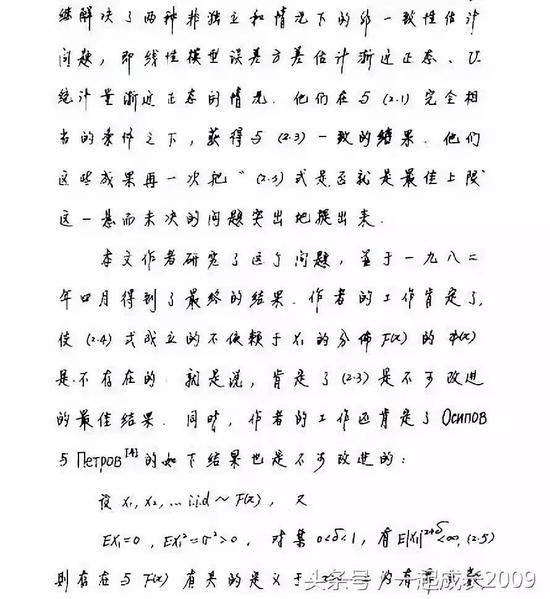 继解决了两种非独立和情况下的非一致性估计
问题，即线性模型误差方差估计渐近正态、U
统计量渐近正态的情况. 他们在与 (2.1) 完全相
当的条件之下，获得与 (2.3) 一致的结果. 他们
这些成果再一次把"(2.3) 式是否就是最佳上限"
这一悬而未决的问题突出地提出来.
本文作者研究了这个问题，并于一九八二
年四月得到了最终的结果. 作者的工作肯定了,
使 (2.4) 式成立的不依赖于 X₁ 的分佈 F(x) 的 φ(x)
是不存在的. 就是说，肯定了 (2.3) 是不可改进
的最佳结果. 同时，作者的工作还肯定了 Осипов
与 Петров[4] 的如下结果也是不可改进的：
设 X₁, X₂, … i.i.d ~ F(x), 又
EX₁=0, EX₁²=σ²>0, 对某 0<δ<1, 有 E|X₁|²⁺ᵟ<∞, (2.5)
则存在与 F(x) 有关的定义于
头条号 / 一起成长2009